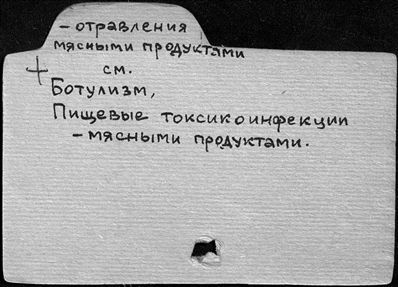 - отравления
мясными продуктами
+ см.
Ботулизм,
Пищевые токсикоинфекции
- мясными продуктами.